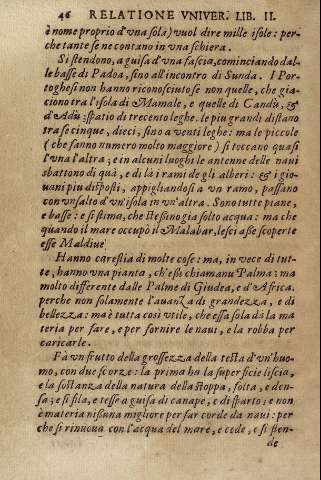 46 RELATIONE VNIVER. LIB. II.
è nome proprio d'vna sola) vuol dire mille isole: per-
che tante se ne contano in vna schiera.
Si stendono, a guisa d'vna fascia, cominciando dal-
le basse di Padoa, sino all'incontro di Sunda. I Por-
toghesi non hanno riconosciuto se non quelle, che gia-
ciono tra l'isola di Mamale, e quelle di Candu, &
d'Adu; spatio di trecento leghe. le piu grandi distano
tra se cinque, dieci, sino a venti leghe: ma le piccole
(che sanno numero molto maggiore) si toccano quasi
l'vna l'altra; e in alcuni luoghi le antenne delle naui
sbattono di quà, e di là i rami degli alberi: & i gio-
uani piu disposti, appigliandosi a vn ramo, passano
con vn salto d'vn'isola in vn'altra. Sono tutte piane,
e basse: e si stima, che stesino gia sotto acqua: ma che
quando il mare occupò il Malabar, lesci asse scoperte
esse Maldiue
Hanno carestia di molte cose: ma, in vece di tut-
te, hanno vna pianta, ch'essi chiamanu Palma; ma
molto differente dalle Palme di Giudea, e d'Africa.
perche non solamente l'auanza di grandezza, e di
bellezza: ma è tutta così vtile, che essa sola dà la ma
teria per fare, e per fornire le naui, e la robba per
caricarle.
Fà vn frutto della grossezza della testa d'vn'huo-
mo, con due scorze: la prima ha la superficie liscia,
e la sostanza della natura della stoppa, folta, e den-
sa; e si fila, e tesse a guisa di canape, e di sparto; e non
è materia nissuna migliore per far corde da naui: per
che si rinuoua con l'acqua del mare, e cede, e si sten-
de